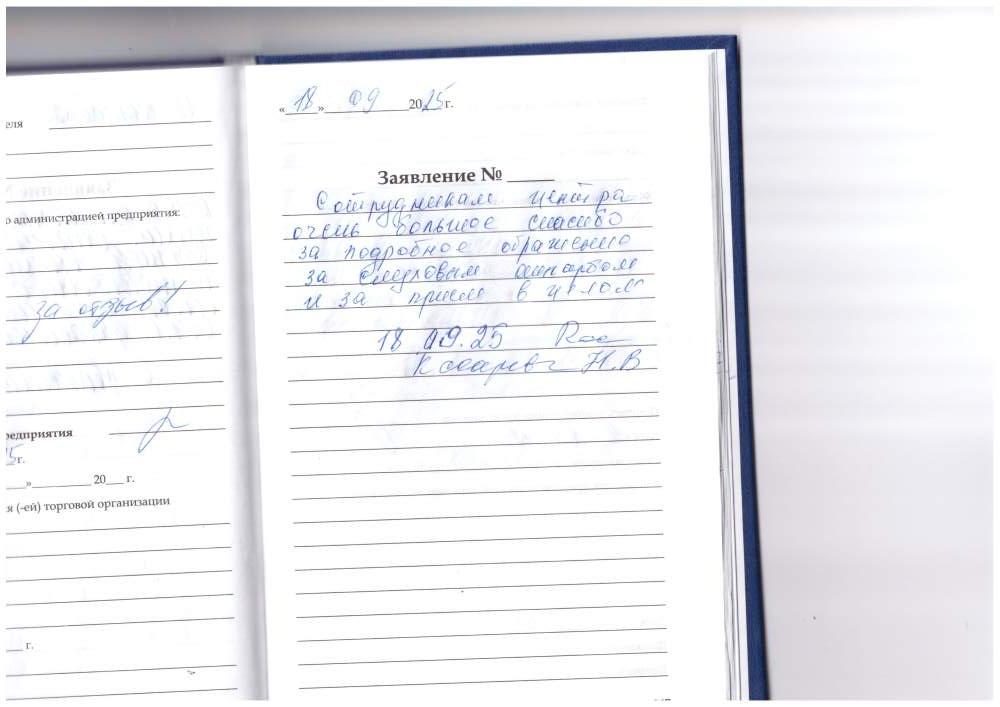 еля
о администрацией предприятия:
за отзыв!
редприятия
15 г.
»__________ 20___ г.
я (-ей) торговой организации
___ г.
«18» 09 2025 г.
Заявление № ____
Сотрудникам центра
очень большое спасибо
за подробное обращение
за слуховым аппаратом
и за прием в целом
18 09.25
Н.В